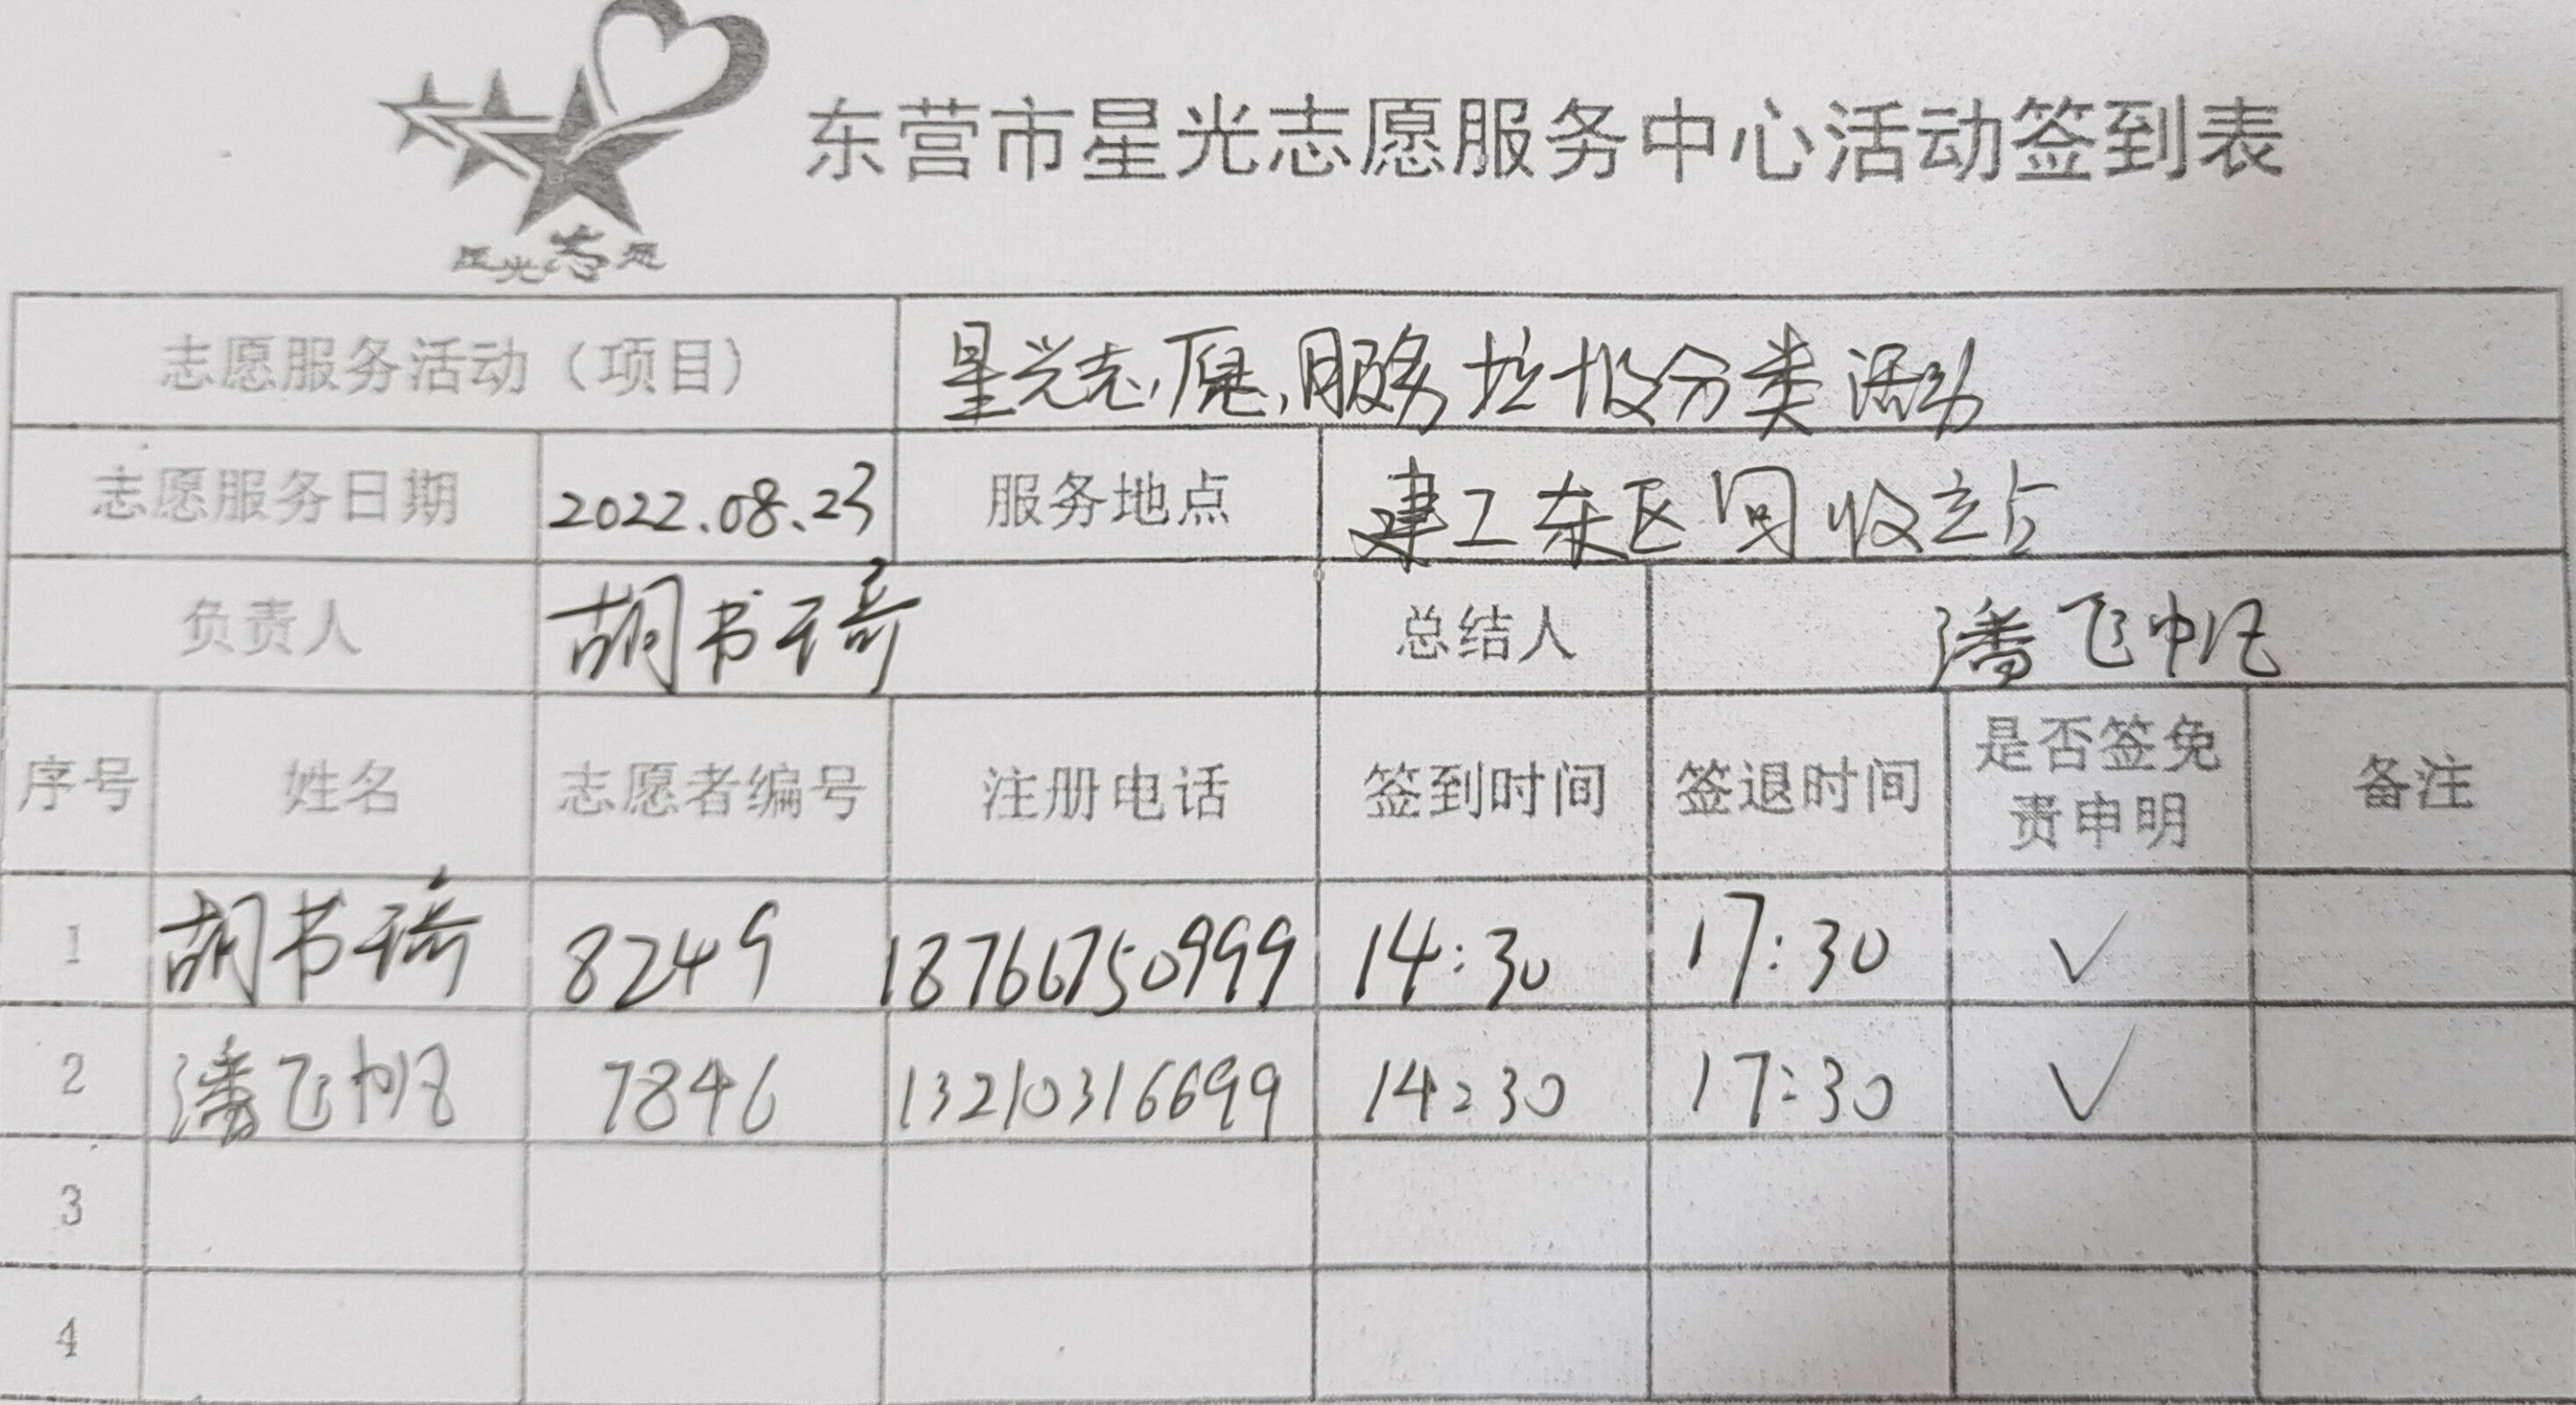 东营市星光志愿服务中心活动签到表
星光志愿
志愿服务活动（项目） 星光志愿服务垃圾分类活动
志愿服务日期 2022.08.23 服务地点 建工东区回收站
负责人 胡书琦 总结人 潘飞帆
序号 姓名 志愿者编号 注册电话 签到时间 签退时间 是否签免责申明 备注
1 胡书琦 8249 18766750999 14:30 17:30 √
2 潘飞帆 7846 13210316699 14:30 17:30 √
3
4